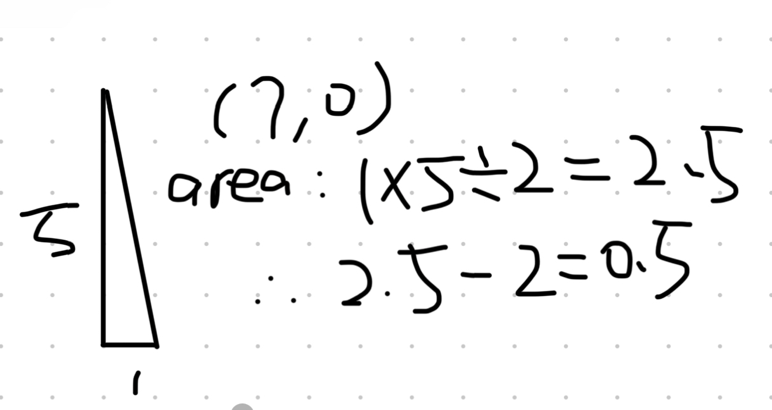 (7,0)
area: 1×5÷2=2.5
5
∴ 2.5-2=0.5
1